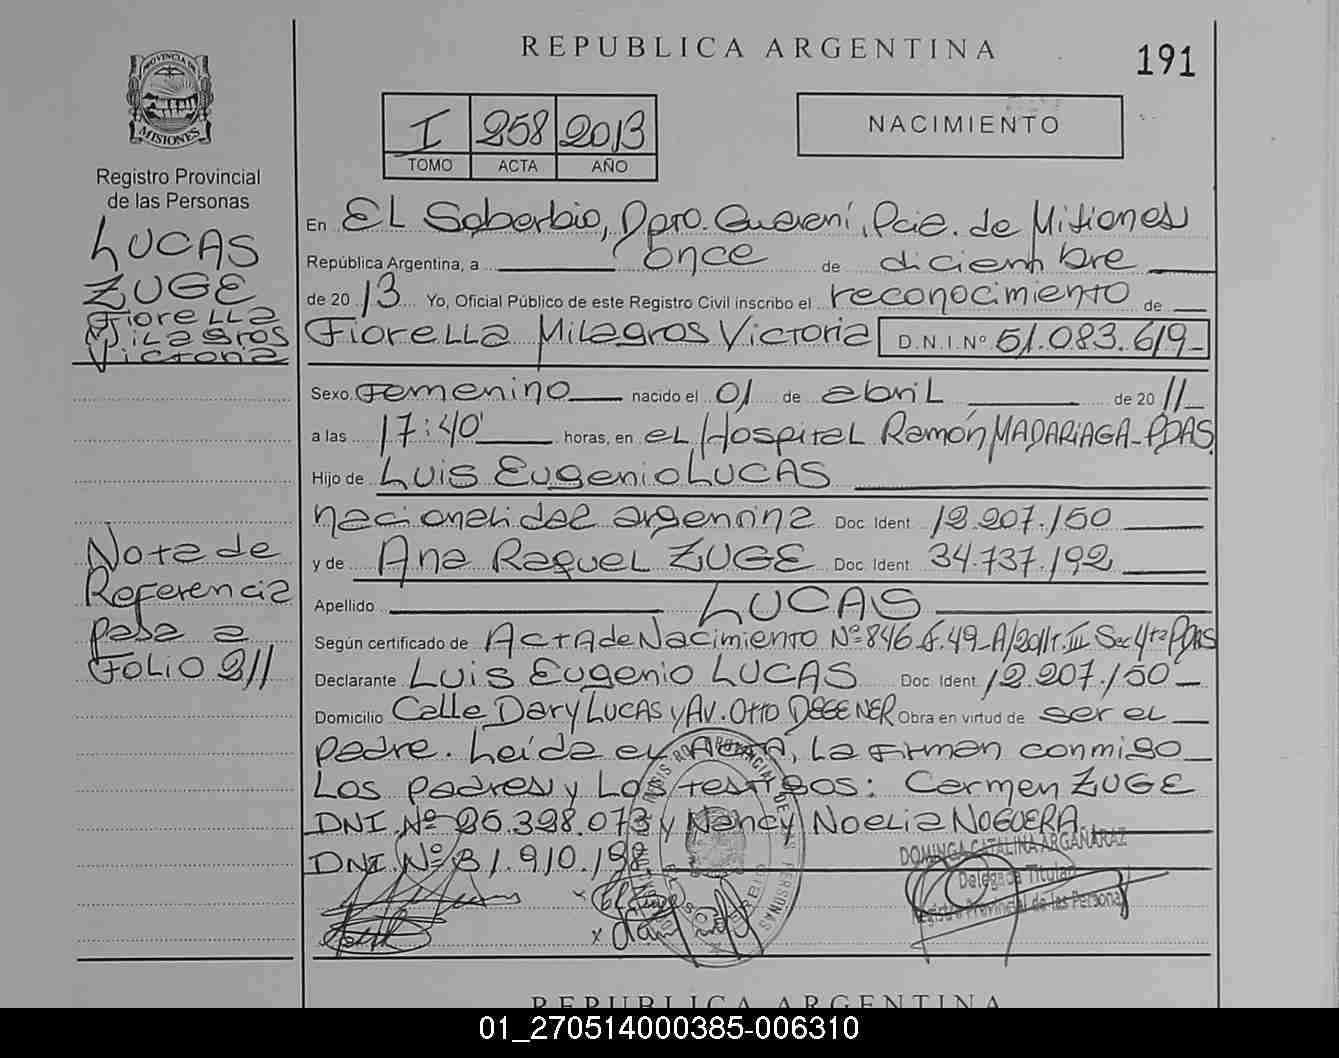 REPUBLICA ARGENTINA
191
PROVINCIA DE
MISIONES
Registro Provincial
de las Personas
I 258 2013
TOMO ACTA AÑO
NACIMIENTO
LUCAS
ZUGE
Fiorella
Milagros
Victoria
En El Soberbio, Dpto. Guaraní, Pcia. de Misiones
República Argentina, a once de diciembre
de 20 13 Yo, Oficial Público de este Registro Civil inscribo el reconocimiento de
Fiorella Milagros Victoria D.N.I.Nº 51.083.619
Sexo Femenino nacido el 01 de abril de 20 11
a las 17:40' horas, en el Hospital Ramón MADARIAGA-PDAS.
Hijo de Luis Eugenio LUCAS
nacionalidad argentina Doc. Ident. 12.207.150
y de Ana Raquel ZUGE Doc. Ident. 34.737.192
Apellido LUCAS
Según certificado de Acta de Nacimiento Nº 846 F.49-A/2011 T.III Sec 4ta PDAS
Declarante Luis Eugenio LUCAS Doc. Ident. 12.207.150
Domicilio Calle Dary LUCAS y AV. Otto DEGENER Obra en virtud de ser el
padre. Leída el Acta, La firman conmigo
Los padres y Los testigos: Carmen ZUGE
DNI. Nº 26.328.073 y Nancy Noelia NOGUERA
DNI. Nº 31.910.198
Nota de
Referencia
pasa a
FOLIO 211
DOMINGA CATALINA ARGAÑARAZ
Delegada Titular
Registro Provincial de las Personas
REPUBLICA ARGENTINA
01_270514000385-006310